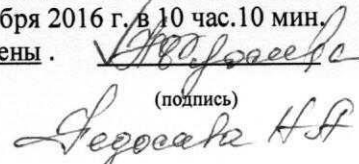 бря 2016 г. в 10 час.10 мин.
ены .
(подпись)
Федосова Н.А